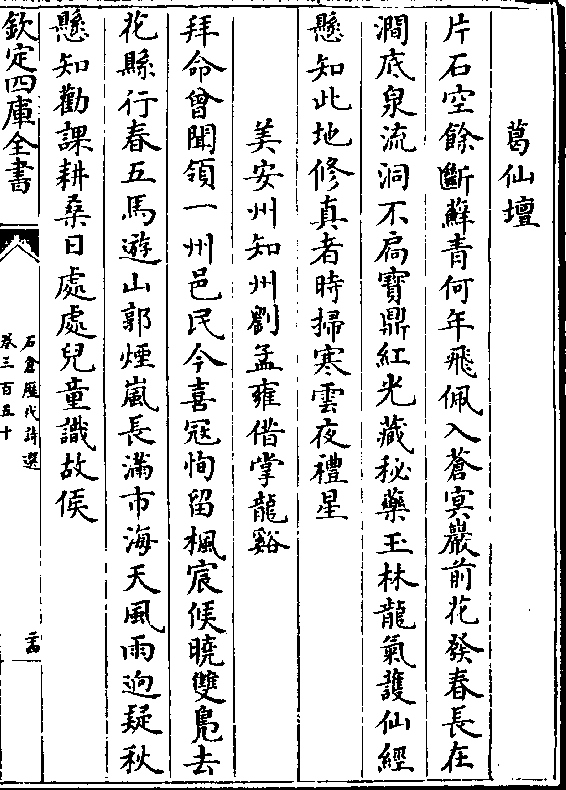 葛仙壇
片石空餘斷蘚青何年飛佩入蒼㝠巖前花發春長在
澗底泉流洞不扃寶鼎紅光藏秘藥玉林龍氣護仙經
懸知此地修真者時掃寒雲夜禮星
美安州知州劉孟雍借掌龍谿
拜命曾聞領一州邑民今喜冦恂留楓宸候曉雙鳬去
花縣行春五馬遊山郭煙嵐長滿市海天風雨迥疑秋
懸知勸課耕桑日處處兒童識故侯
欽定四庫全書
石倉歴代詩選
卷三百五十